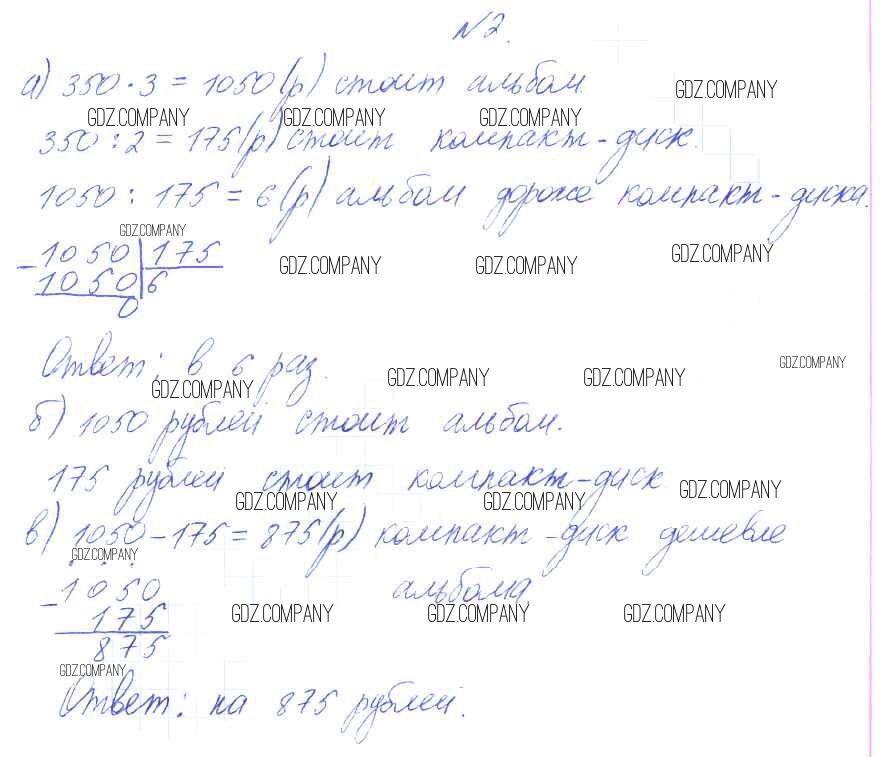 №2.
а) 350 · 3 = 1050 (р) стоит альбом.
GDZ.COMPANY
GDZ.COMPANY GDZ.COMPANY GDZ.COMPANY
350 : 2 = 175 (р) стоит компакт-диск.
1050 : 175 = 6 (р) альбом дороже компакт-диска.
GDZ.COMPANY
- 1050 | 175
GDZ.COMPANY GDZ.COMPANY GDZ.COMPANY
1050 6
0
Ответ: в 6 раз.
GDZ.COMPANY GDZ.COMPANY GDZ.COMPANY GDZ.COMPANY
б) 1050 рублей стоит альбом.
175 рублей стоит компакт-диск
GDZ.COMPANY GDZ.COMPANY GDZ.COMPANY
в) 1050 - 175 = 875 (р) компакт-диск дешевле
GDZ.COMPANY
- 1050 альбома
175
GDZ.COMPANY GDZ.COMPANY GDZ.COMPANY
875
GDZ.COMPANY
Ответ: на 875 рублей.